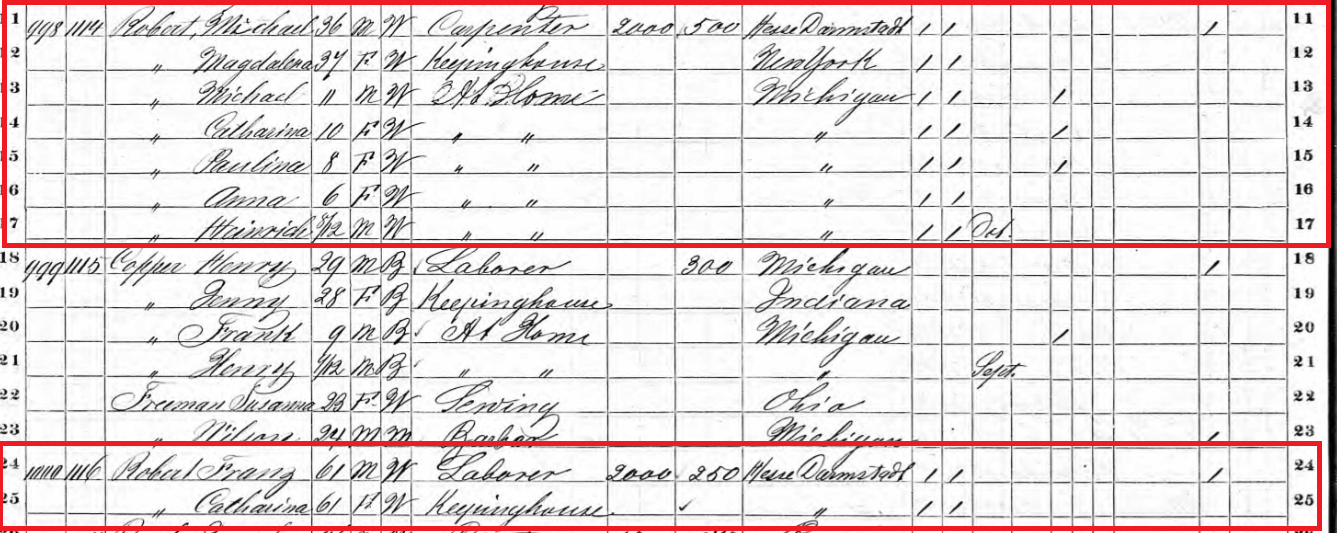 11 998 1114 Robert, Michael 36 M W Carpenter 2000 500 Hesse Darmstadt / / / 11
12 " Magdalena 37 F W Keepinghouse New York / / 12
13 " Michael 11 M W At Home Michigan / / / 13
14 " Catharina 10 F W " " " / / / 14
15 " Paulina 8 F W " " " / / / 15
16 " Anna 6 F W " " " / / 16
17 " Heinrich M W " " " / / 17
18 999 1115 Copper Henry 29 M B Laborer 300 Michigan / 18
19 " Jenny 28 F B Keepinghouse Indiana 19
20 " Frank 9 M B At Home Michigan / 20
21 " Henry M B " " " Sept. 21
22 Freeman Susanna 23 F W Sewing Ohio 22
23 " Wilson 24 M M Barber Michigan / 23
24 1000 1116 Robert Franz 61 M W Laborer 2000 250 Hesse Darmstadt / / / 24
25 " Catharina 61 F W Keepinghouse " / / 25